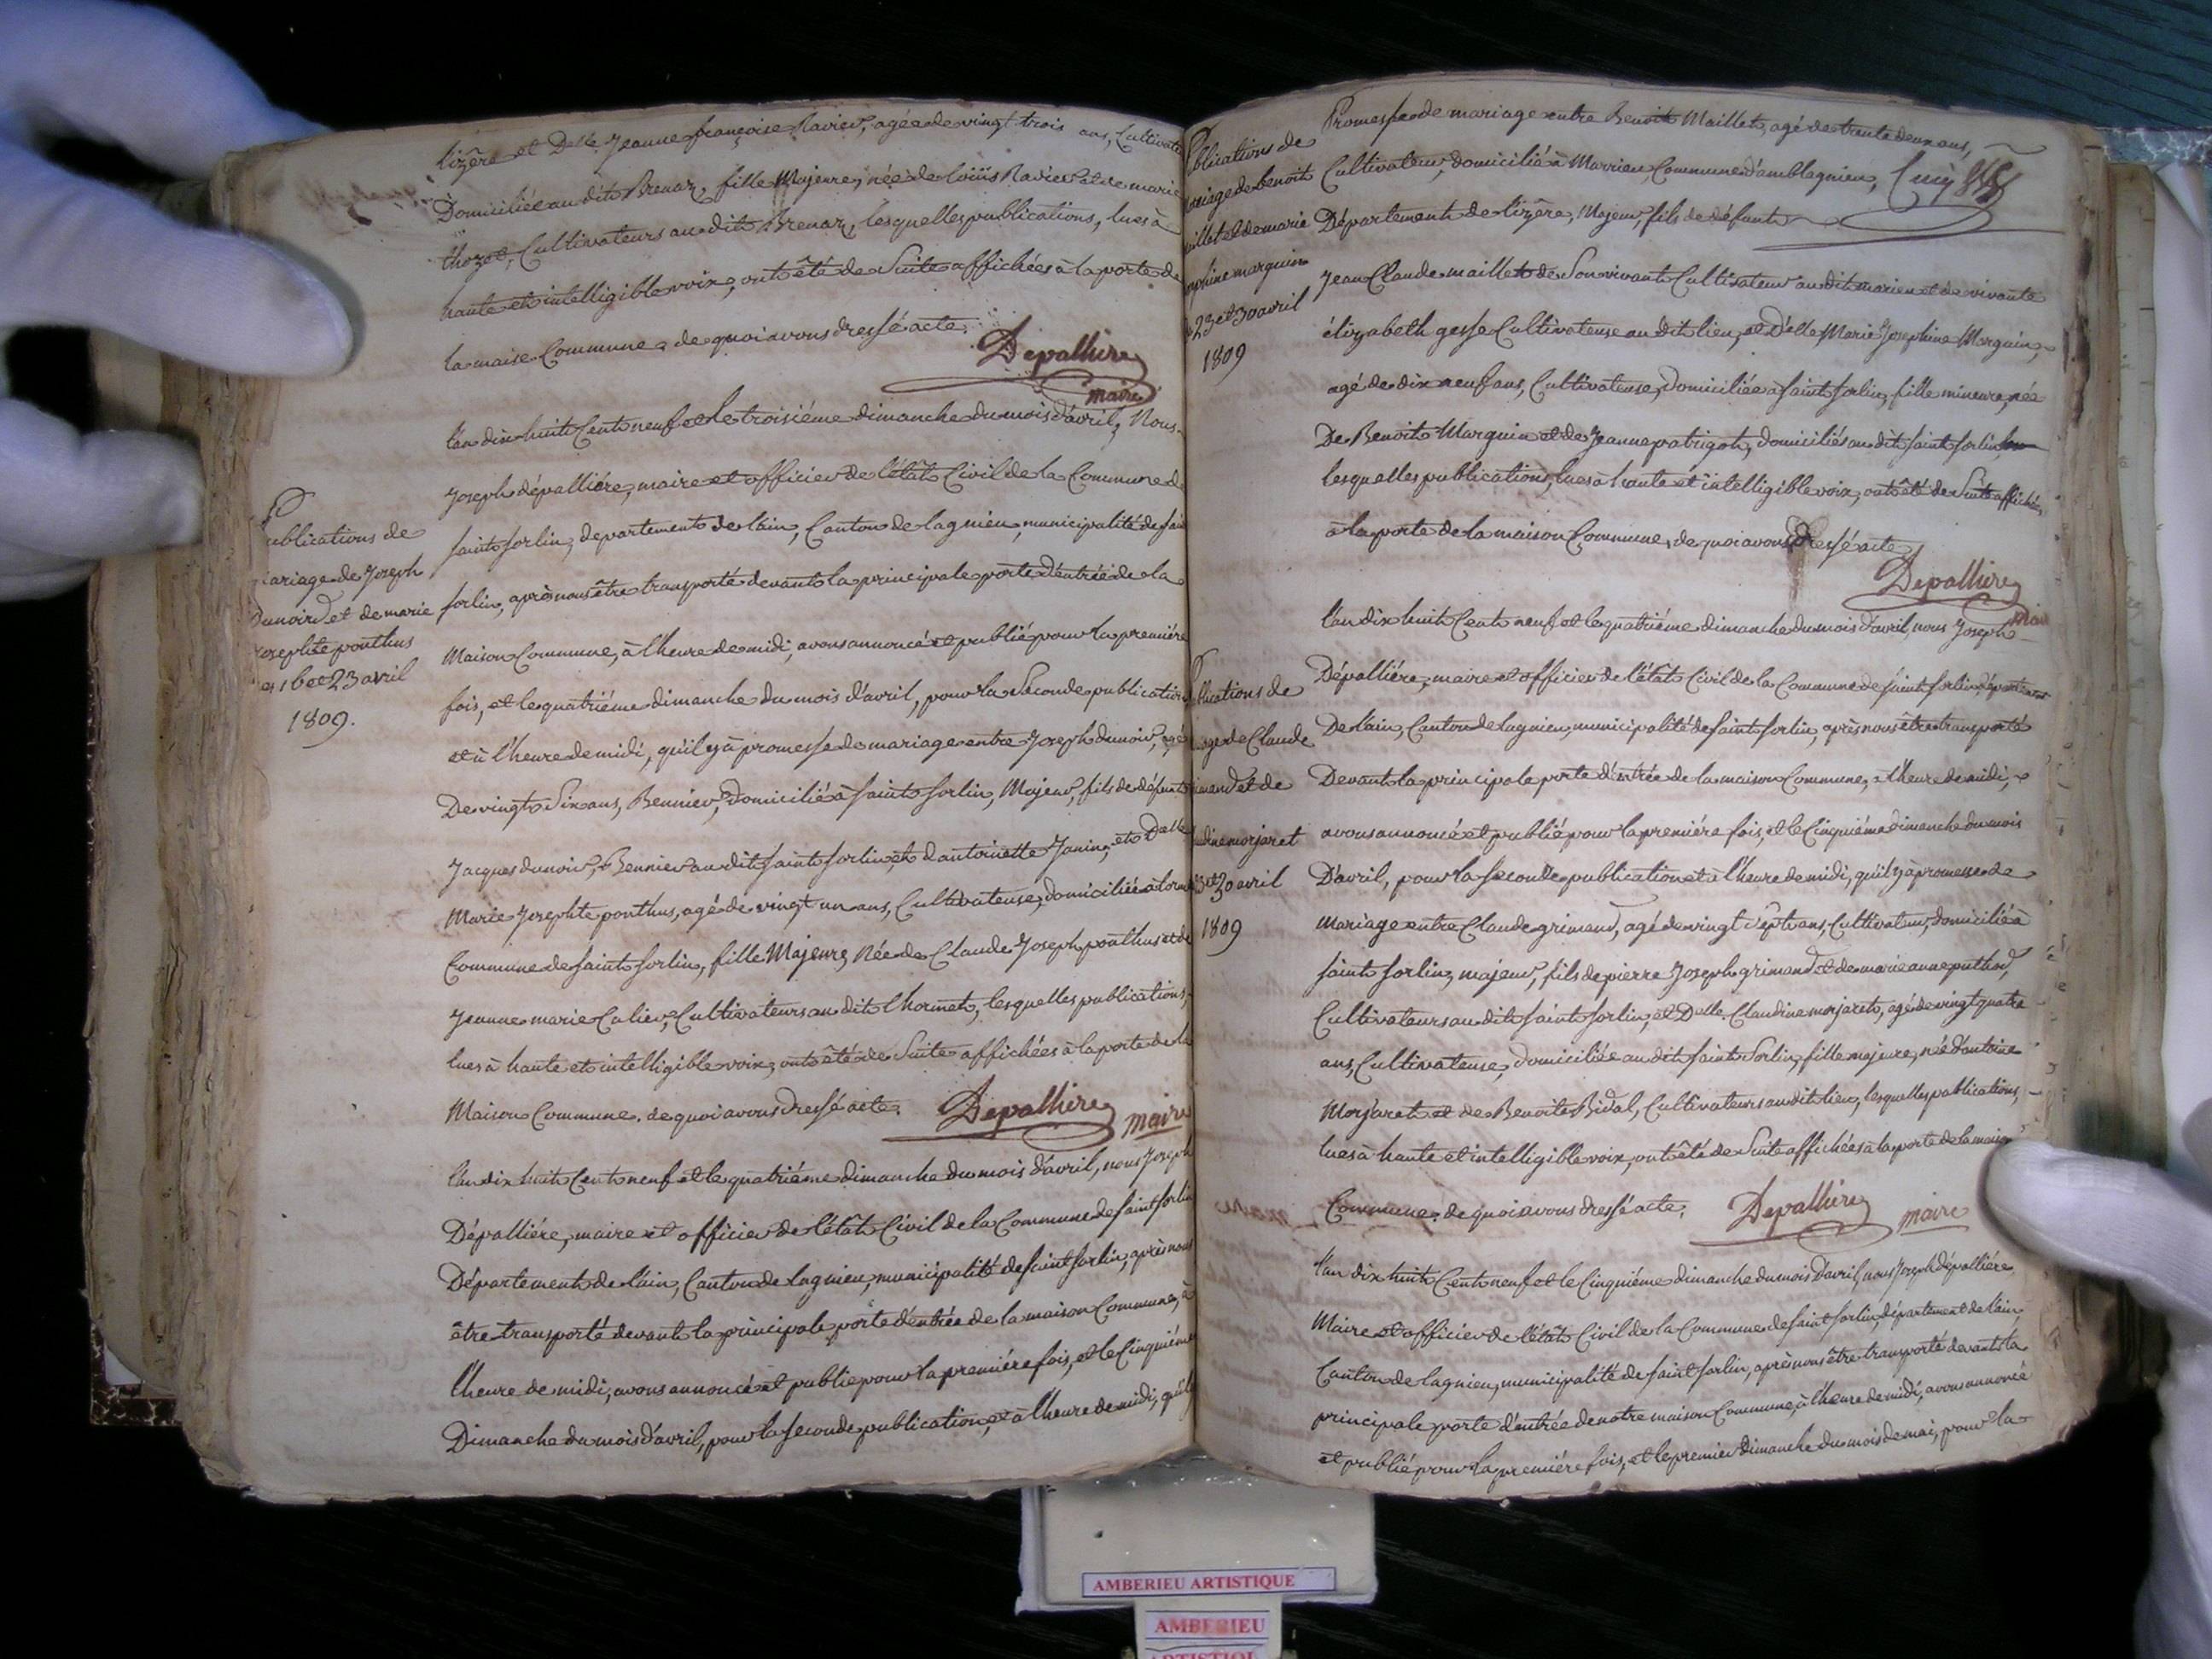 lizère et Delle Jeanne françoise Ravier, agée de vingt trois ans, Cultivate
Domiciliée au dit Brenaz, fille Majeure, née de loüis Ravier et de marie
thozet, Cultivateurs au dit Brenaz, lesquelles publications, lues à
haute et intelligible voix, ont êté de Suite affichées à la porte de
la maise Commune, de quoi avons dressé acte.
Depallière
maire
l'an dix huit Cent neuf et le troisiéme dimanche du mois d'avril, Nous
Joseph dépalliére, maire et officier de l'êtât Civil de la Commune de
saint sorlin, departement de l'ain, Canton de lagnieu, municipalité de sain
sorlin, après nous être transporté devant la principale porte d'entrée de la
Maison Commune, à l'heure de midi, avons annoncé et publié pour la premiére
fois, et le quatriéme dimanche du mois d'avril, pour la Seconde publication
et à l'heure de midi, qu'il y à promesse de mariage entre Joseph dunoir, agé
De vingt Six ans, Bennier, domicilié à saint sorlin, Majeur, fils de défunt
Jacques dunoir, Bennier au dit saint sorlin, et d'antoinette Janin, et Delle
Marie Josephte ponthus, agé de vingt un ans, Cultivateuse, domiciliée à lorm
Commune de saint sorlin, fille Majeure, Née de Claude Joseph ponthus et de
Jeanne marie Culier, Cultivateurs au dit lhormet, lesquelles publications,
lues à haute et intelligible voix, ont êté de Suite affichées à la porte de la
Maison Commune. de quoi avons dressé acte.
Depallière maire
l'an dix huit Cent neuf et le quatriéme dimanche du mois d'avril, nous Joseph
Dépalliére, maire et officier de l'êtât Civil de la Commune de saint sorlin
Département de l'ain, Canton de lagnieu, municipalité de saint sorlin, après nous
être transporté devant la principale porte d'entrée de la maison Commune, à
l'heure de midi, avons annoncé et publie pour la premiére fois, et le Cinquiéme
Dimanche du mois d'avril, pour la seconde publication, et à l'heure de midi, qu'il y
Publications de
mariage de Joseph
Dunoir et de marie
Josephte ponthus
es 16 et 23 avril
1809.
Promesse de mariage entre Benoit Maillet, agé de trente deux ans,
Cultivateur, domicilié à Marrieu, Commune d'amblagnieu,
Département de lizère, Majeur, fils de défunt
Jean Claude maillet de Son vivant Cultivateur au dit marieu et de vivante
élizabeth gesse Cultivateuse au dit lieu, et Delle Marie Josephine Marguin,
agé de dix neuf ans, Cultivateuse, domiciliée à saint sorlin, fille mineure, née
De Benoit Marguin et de Jeanne patrigot, domiciliés au dit saint sorlin,
lesquelles publications, lues à haute et intelligible voix, ont êté de Suite affichées
à la porte de la maison Commune, de quoi avons dressé acte
Depallière
mair
l'an dix huit Cent neuf et le quatriéme dimanche du mois d'avril, nous Joseph
Dépalliére, maire et officier de l'êtât Civil de la Commune de saint sorlin, département
De l'ain, Canton de lagnieu, municipalité de saint sorlin, après nous être transporté
Devant la principale porte d'entrée de la maison Commune, à l'heure de midi,
avons annoncé et publié pour la premiére fois, et le Cinquiéme dimanche du mois
D'avril, pour la seconde publication et à l'heure de midi, qu'il y à promesse de
Mariage entre Claude grimand, agé de vingt sept ans, Cultivateur, domicilié à
saint sorlin, majeur, fils de pierre Joseph grimand et de marie anne puthod,
Cultivateurs au dit saint sorlin, et Delle Claudine morjaret, agé de vingt quatre
ans, Cultivateuse, domiciliée au dit saint Sorlin, fille majeure, née d'antoine
Morjaret et de Benoite Bidal, Cultivateurs au dit lieu, lesquelles publications,
lues à haute et intelligible voix, ont êté de Suite affichées à la porte de la maison
Commune. de quoi avons dressé acte.
Depallière maire
l'an dix huit Cent neuf et le Cinquiéme dimanche du mois d'avril, nous Joseph dépalliére
Maire et officier de l'êtât Civil de la Commune de saint sorlin, département de l'ain,
Canton de lagnieu, municipalité de saint sorlin, après nous être transporté devant la
principale porte d'entrée de notre maison Commune, à l'heure de midi, avons annoncé
et publié pour la premiére fois, et le premier dimanche du mois de mai, pour la
Publications de
mariage de benoit
maillet et de marie
josephine marguin
23 et 30 avril
1809
blications de
age de Claude
imand et de
dine morjaret
3 et 30 avril
1809
AMBERIEU ARTISTIQUE
AMBERIEU
ARTISTIQUE